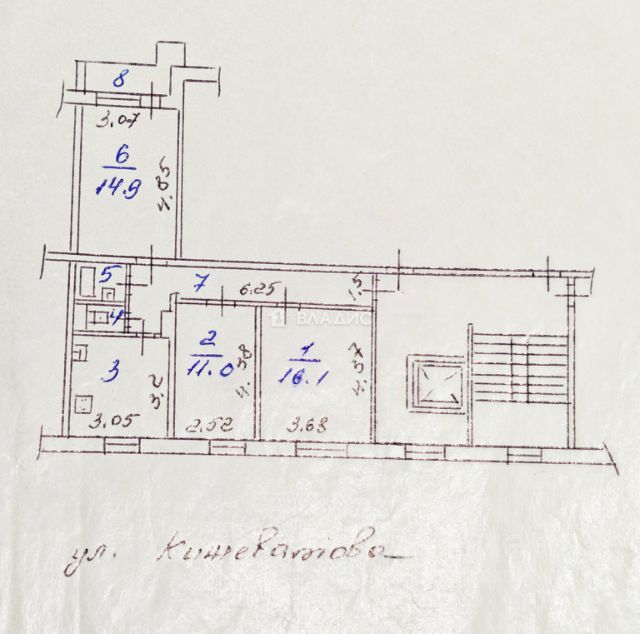 8
3.07
6
14.9
4.85
5
7
6.25
1.5
4
ВЛАДИС
3
3.2
3.05
2
11.0
4.38
2.52
1
16.1
4.37
3.68
ул. Кижеватова